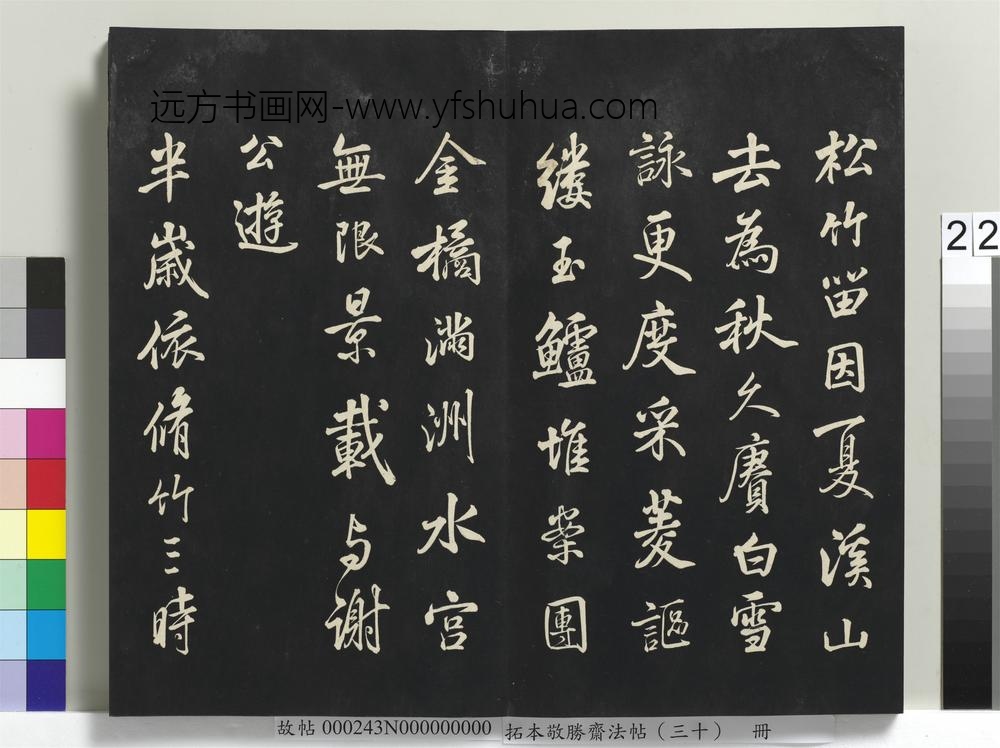 远方书画网-www.yfshuhua.com
松竹留因夏溪山
去為秋久賡白雪
詠更度采菱謳
縷玉鱸堆案團
金橘滿洲水宮
無限景載与謝
公遊
半歲依脩竹三時
22
2
故帖 000243N000000000
拓本敬勝齋法帖（三十） 冊